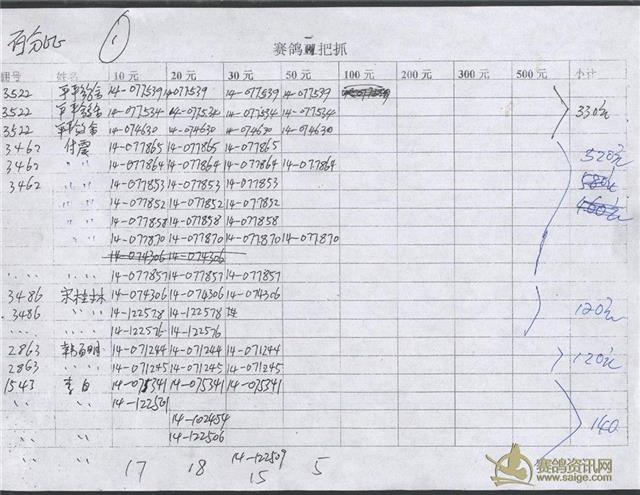 百分比 ①
赛鸽一把抓
棚号 姓名 10元 20元 30元 50元 100元 200元 300元 400元 500元 小计
3522 14-077539 14-077539 14-077539 14-077539
3522 14-077534 14-077534 14-077534 14-077534 330元
3522 14-074630 14-074630 14-074630 14-074630
3462 付震 14-077865 14-077865 14-077865
3462 〃 〃 14-077864 14-077864 14-077864 14-077864 520元
3462 〃 〃 14-077853 14-077853 14-077853 580元
〃 〃 14-077852 14-077852 14-077852 460元
〃 〃 14-077858 14-077858 14-077858
〃 〃 14-077870 14-077870 14-077870 14-077870
14-074306 14-074306
〃 〃 〃 〃 14-077857 14-077857 14-077857
3486 宋桂林 14-074306 14-074306 14-074306
3486 〃 〃 14-122578 14-122578 14 120元
〃 〃 〃 〃 14-122576 14-122576
2863 14-071244 14-071244 14-071244
2863 〃 〃 14-071245 14-071245 14-071245 120元
1543 李白 14-075341 14-075341 14-075341
〃 〃 〃 〃 14-122501
〃 〃 〃 14-102454 140
〃 〃 〃 14-122506
〃 〃 〃 14-122509
17 18 15 5
赛鸽资讯网
www.saige.com